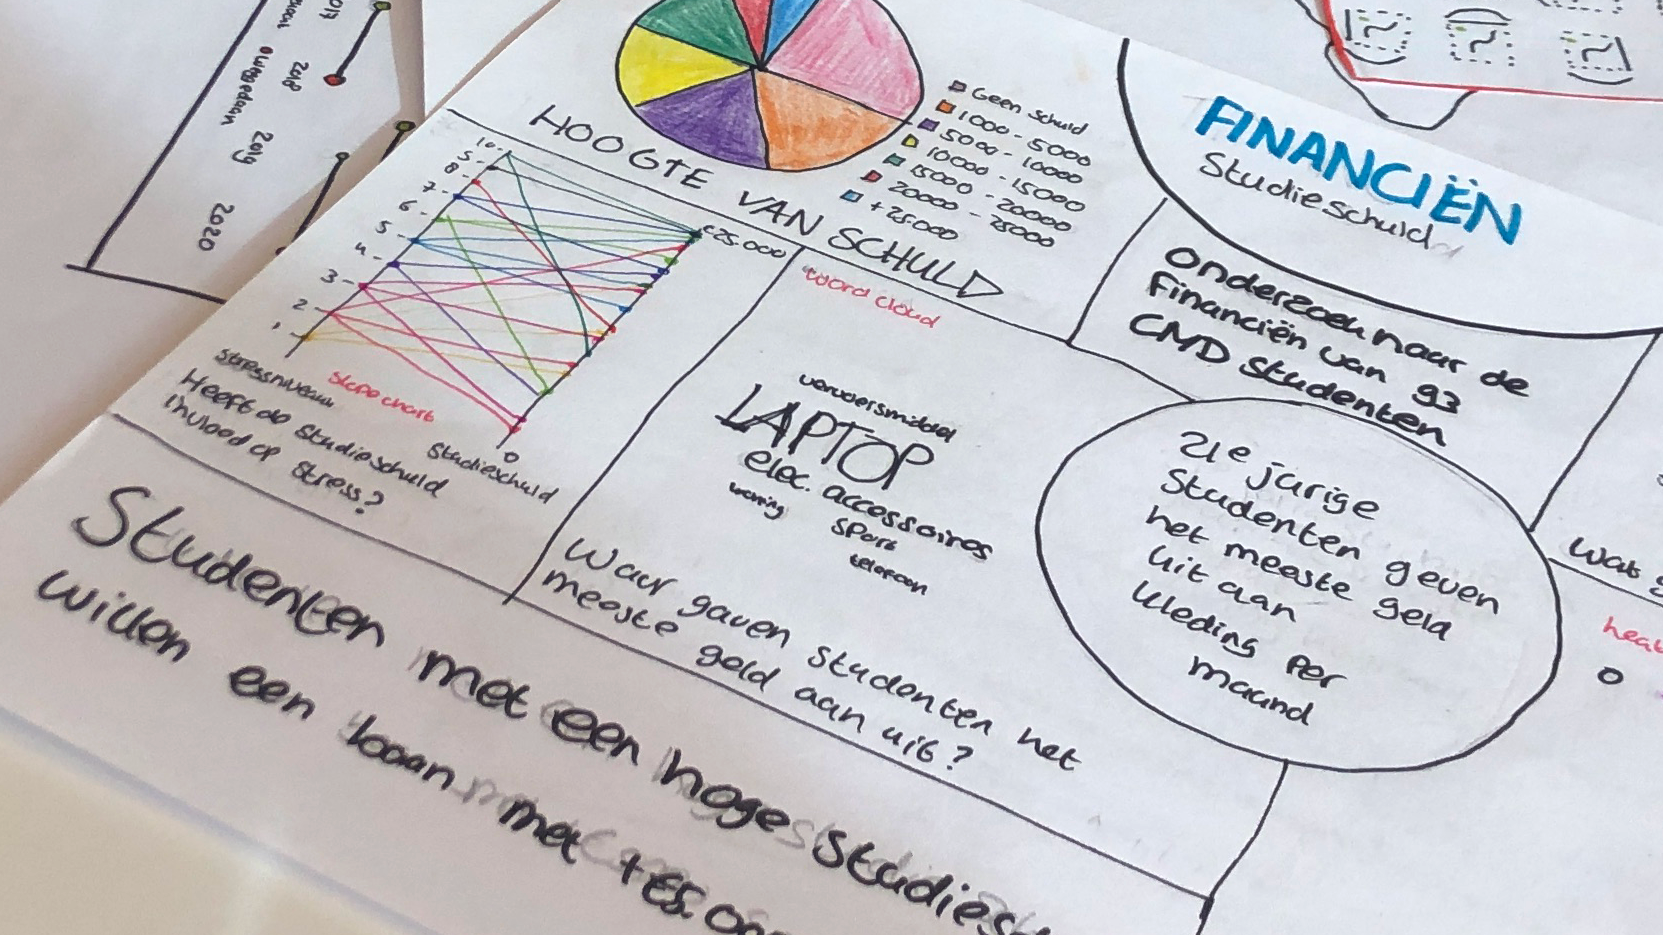 2017
2018
2019
2020
Geen schuld
1000 - 5000
5000 - 10000
10000 - 15000
15000 - 20000
20000 - 25000
+25000
HOOGTE VAN SCHULD
FINANCIËN
Studieschuld
Onderzoek naar de
Financiën van 93
CMD Studenten
10
9
8
7
6
5
4
3
2
1
€25.000
0
Stressniveau
Slope chart
Studieschuld
Heeft de Studieschuld
invloed op stress?
word cloud
vervoersmiddel
LAPTOP
elec. accessoires
woning
sport
telefoon
Waar gaven studenten het
meeste geld aan uit?
21e jarige
Studenten geven
het meeste geld
uit aan
kleding per
maand
Wat
heat
0
Studenten met een hoge Studies
willen een baan met +€5.00